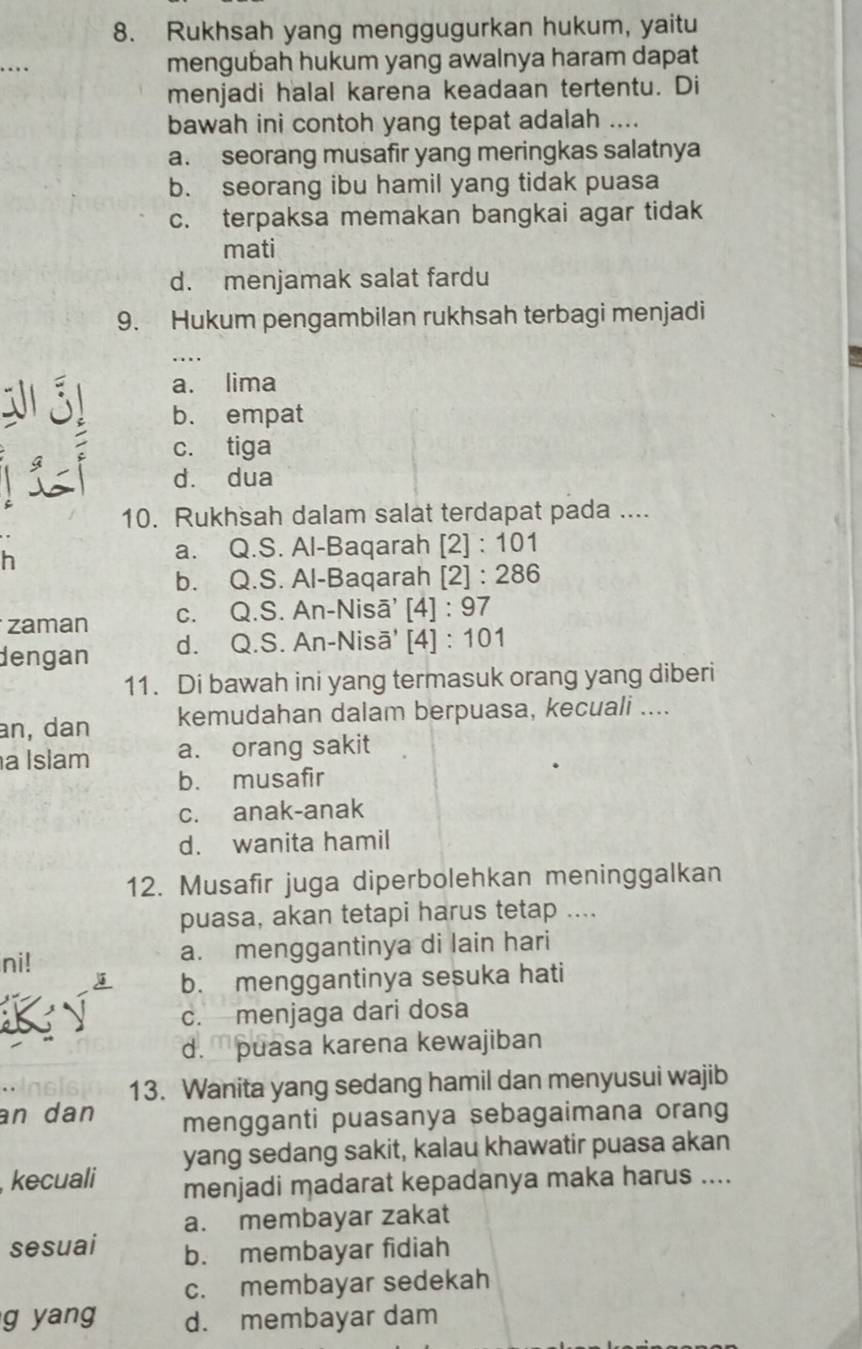 8. Rukhsah yang menggugurkan hukum, yaitu
mengubah hukum yang awalnya haram dapat
menjadi halal karena keadaan tertentu. Di
bawah ini contoh yang tepat adalah ....
a. seorang musafir yang meringkas salatnya
b. seorang ibu hamil yang tidak puasa
c. terpaksa memakan bangkai agar tidak
mati
d. menjamak salat fardu
9. Hukum pengambilan rukhsah terbagi menjadi
....
a. lima
b. empat
c. tiga
d. dua
10. Rukhsah dalam salat terdapat pada ....
a. Q.S. Al-Baqarah [2] : 101
b. Q.S. Al-Baqarah [2] : 286
c. Q.S. An-Nisā' [4] : 97
d. Q.S. An-Nisā' [4] : 101
11. Di bawah ini yang termasuk orang yang diberi
kemudahan dalam berpuasa, kecuali ....
a. orang sakit
b. musafir
c. anak-anak
d. wanita hamil
12. Musafir juga diperbolehkan meninggalkan
puasa, akan tetapi harus tetap ....
a. menggantinya di lain hari
b. menggantinya sesuka hati
c. menjaga dari dosa
d. puasa karena kewajiban
13. Wanita yang sedang hamil dan menyusui wajib
mengganti puasanya sebagaimana orang
yang sedang sakit, kalau khawatir puasa akan
menjadi madarat kepadanya maka harus ....
a. membayar zakat
b. membayar fidiah
c. membayar sedekah
d. membayar dam
....
إِنَّ
h
zaman
dengan
an, dan
a Islam
ni!
..
an dan
, kecuali
sesuai
g yang